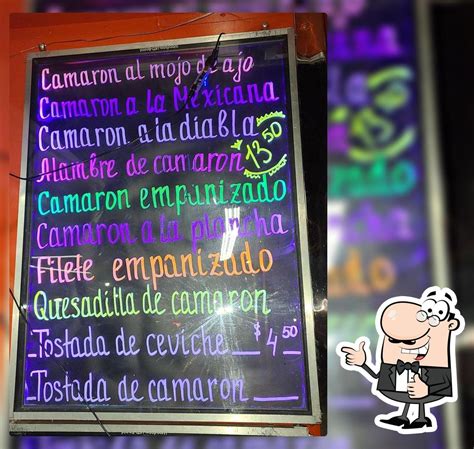 Camaron al mojo de ajo
Camaron a la Mexicana
Camaron a la diabla
Alambre de camaron 13 50
Camaron empanizado
Camaron a la plancha
Filete empanizado
Quesadilla de camaron
Tostada de ceviche $ 4 50
Tostada de camaron